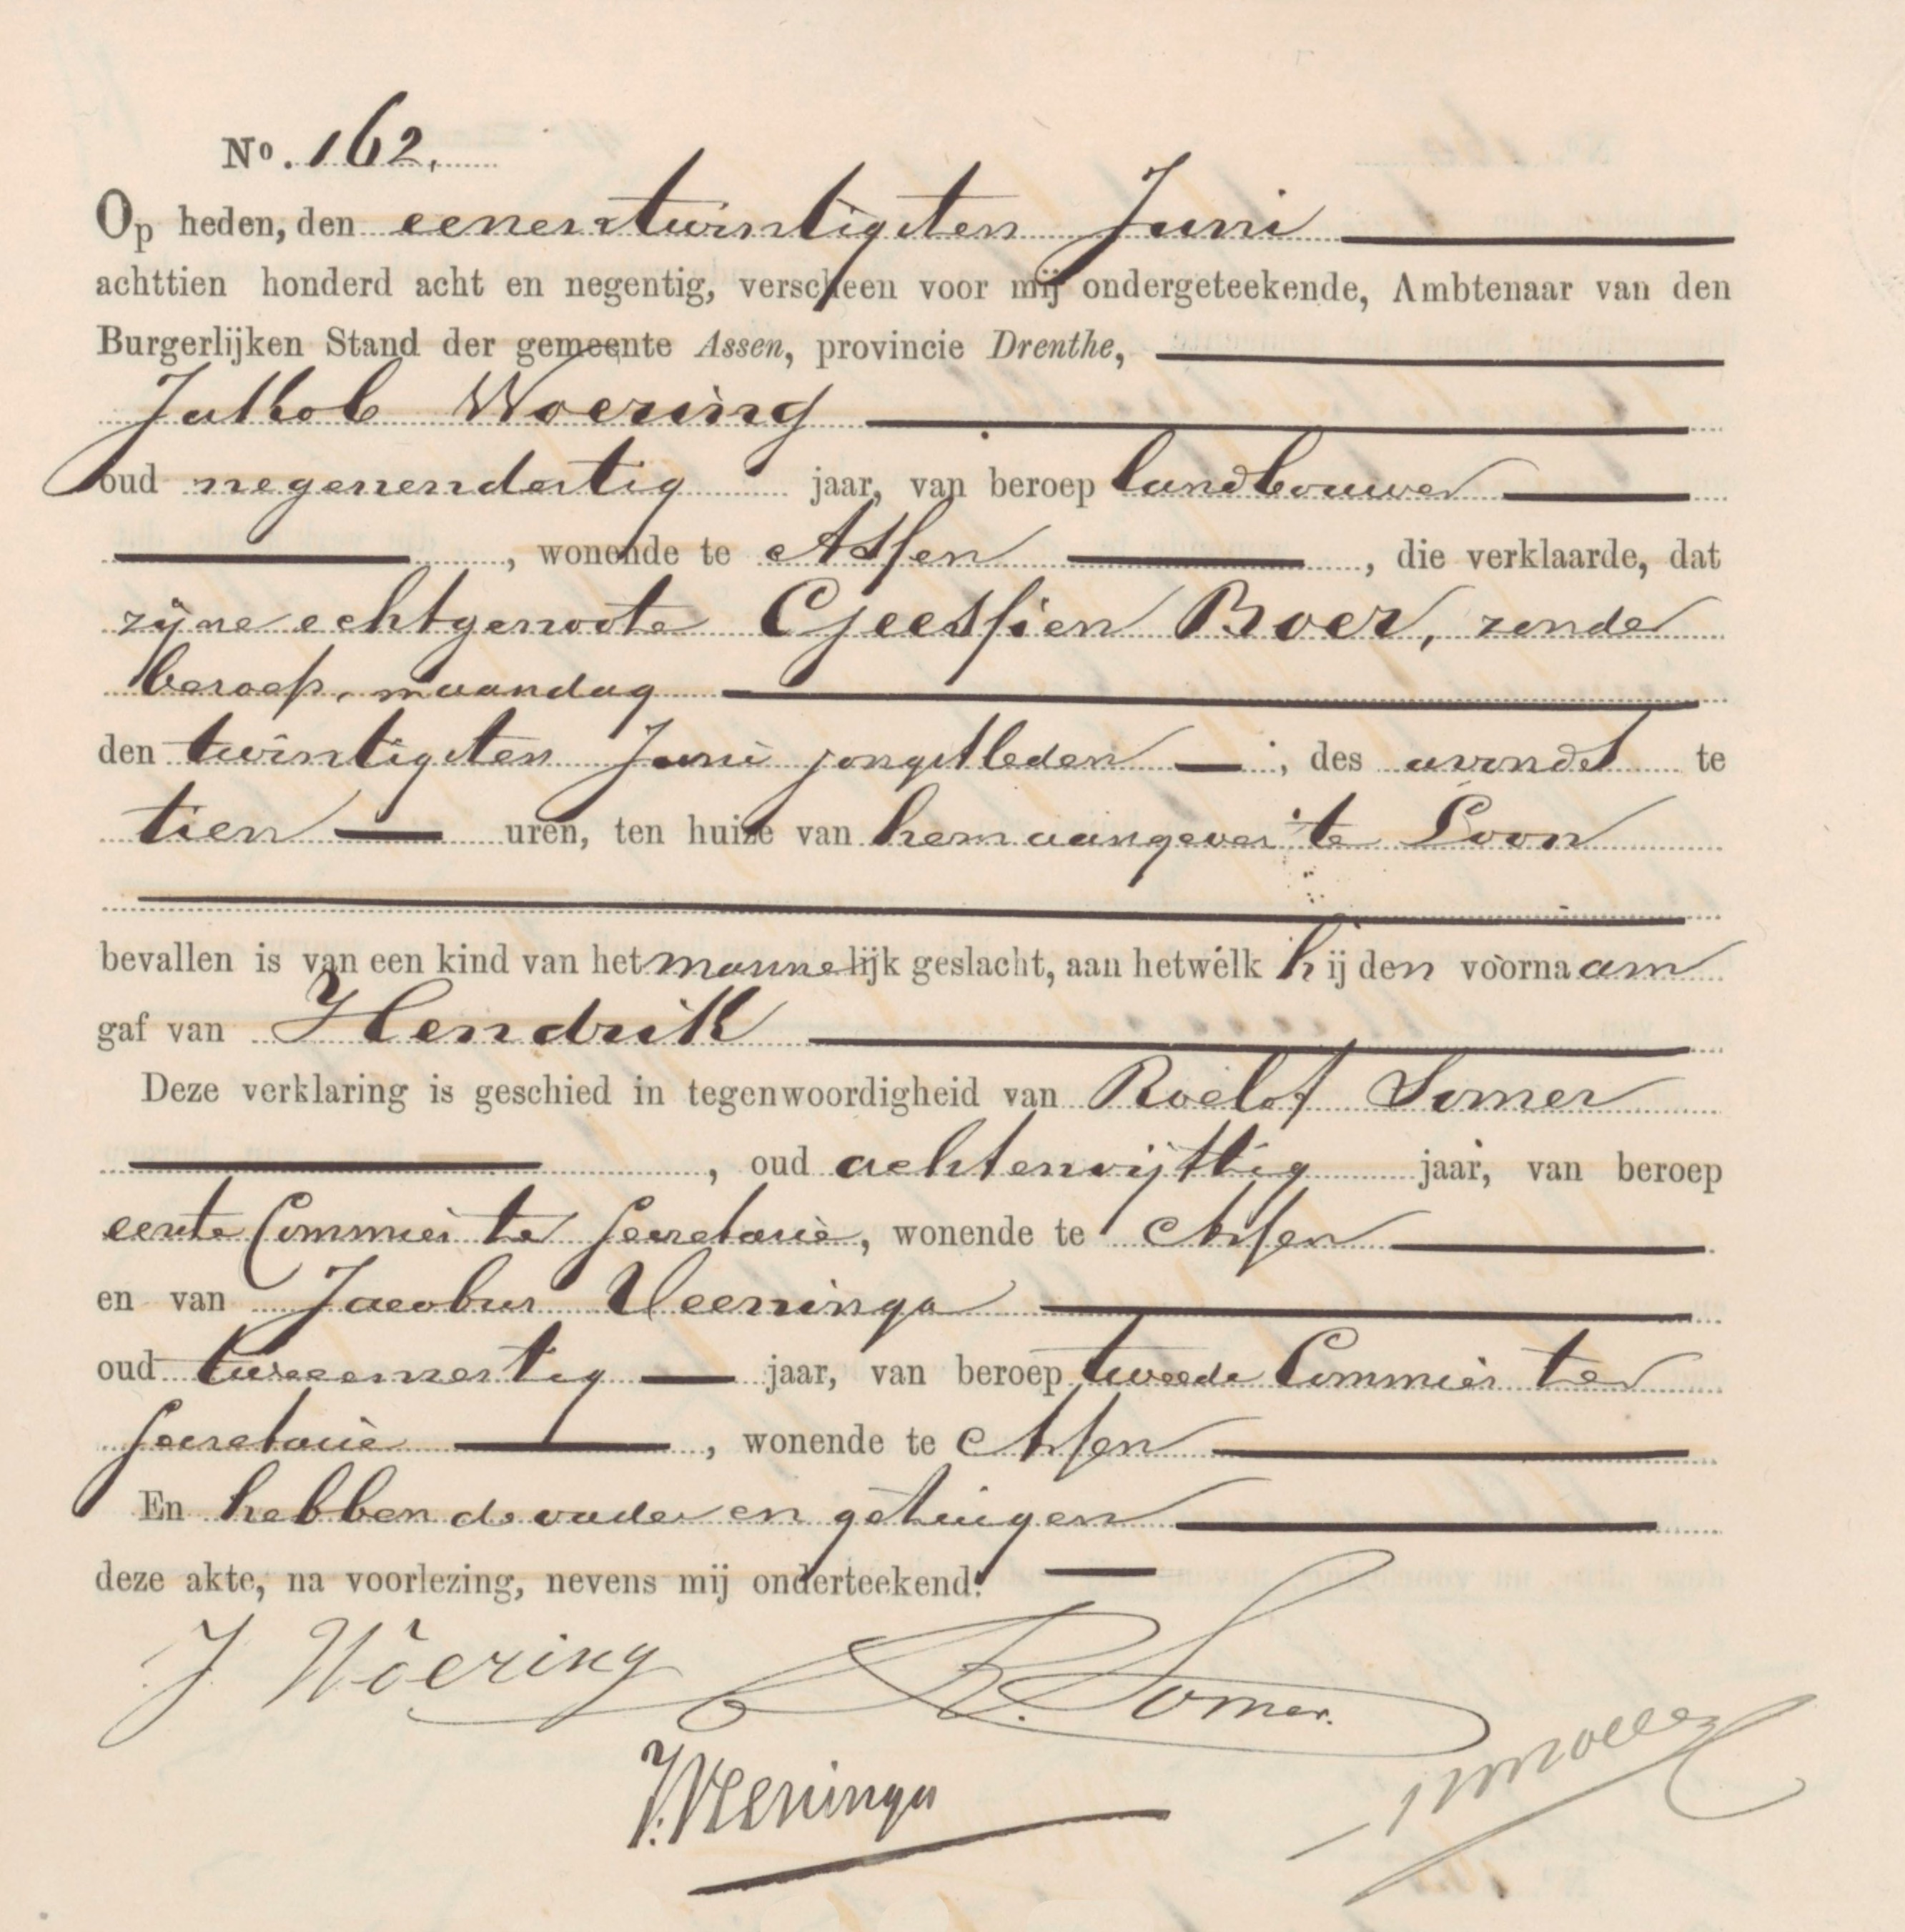 No. 162.
Op heden, den eenentwintigsten Juni
achttien honderd acht en negentig, verscheen voor mij ondergeteekende, Ambtenaar van den
Burgerlijken Stand der gemeente Assen, provincie Drenthe,
Jakkob Woering
oud negenendertig jaar, van beroep landbouwer
, wonende te Assen , die verklaarde, dat
zijne echtgenoote Geessien Boer, zonder
beroep, maandag
den twintigsten Juni jongstleden , des avonds te
tien uren, ten huize van hem aangever te Loon
bevallen is van een kind van het mannelijk geslacht, aan hetwelk hij den voornaam
gaf van Hendrik
Deze verklaring is geschied in tegenwoordigheid van Roelof Somer
, oud achtenvijftig jaar, van beroep
eerste Commies ter Secretarie, wonende te Assen
en van Jacobus Veeninga
oud tweeenveertig jaar, van beroep tweede Commies ter
Secretarie , wonende te Assen
En hebben de vader en getuigen
deze akte, na voorlezing, nevens mij onderteekend.
J Woering R. Somer.
J. Veeninga